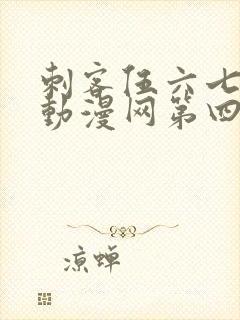 刺客伍六七
動漫网第四
凉蝉